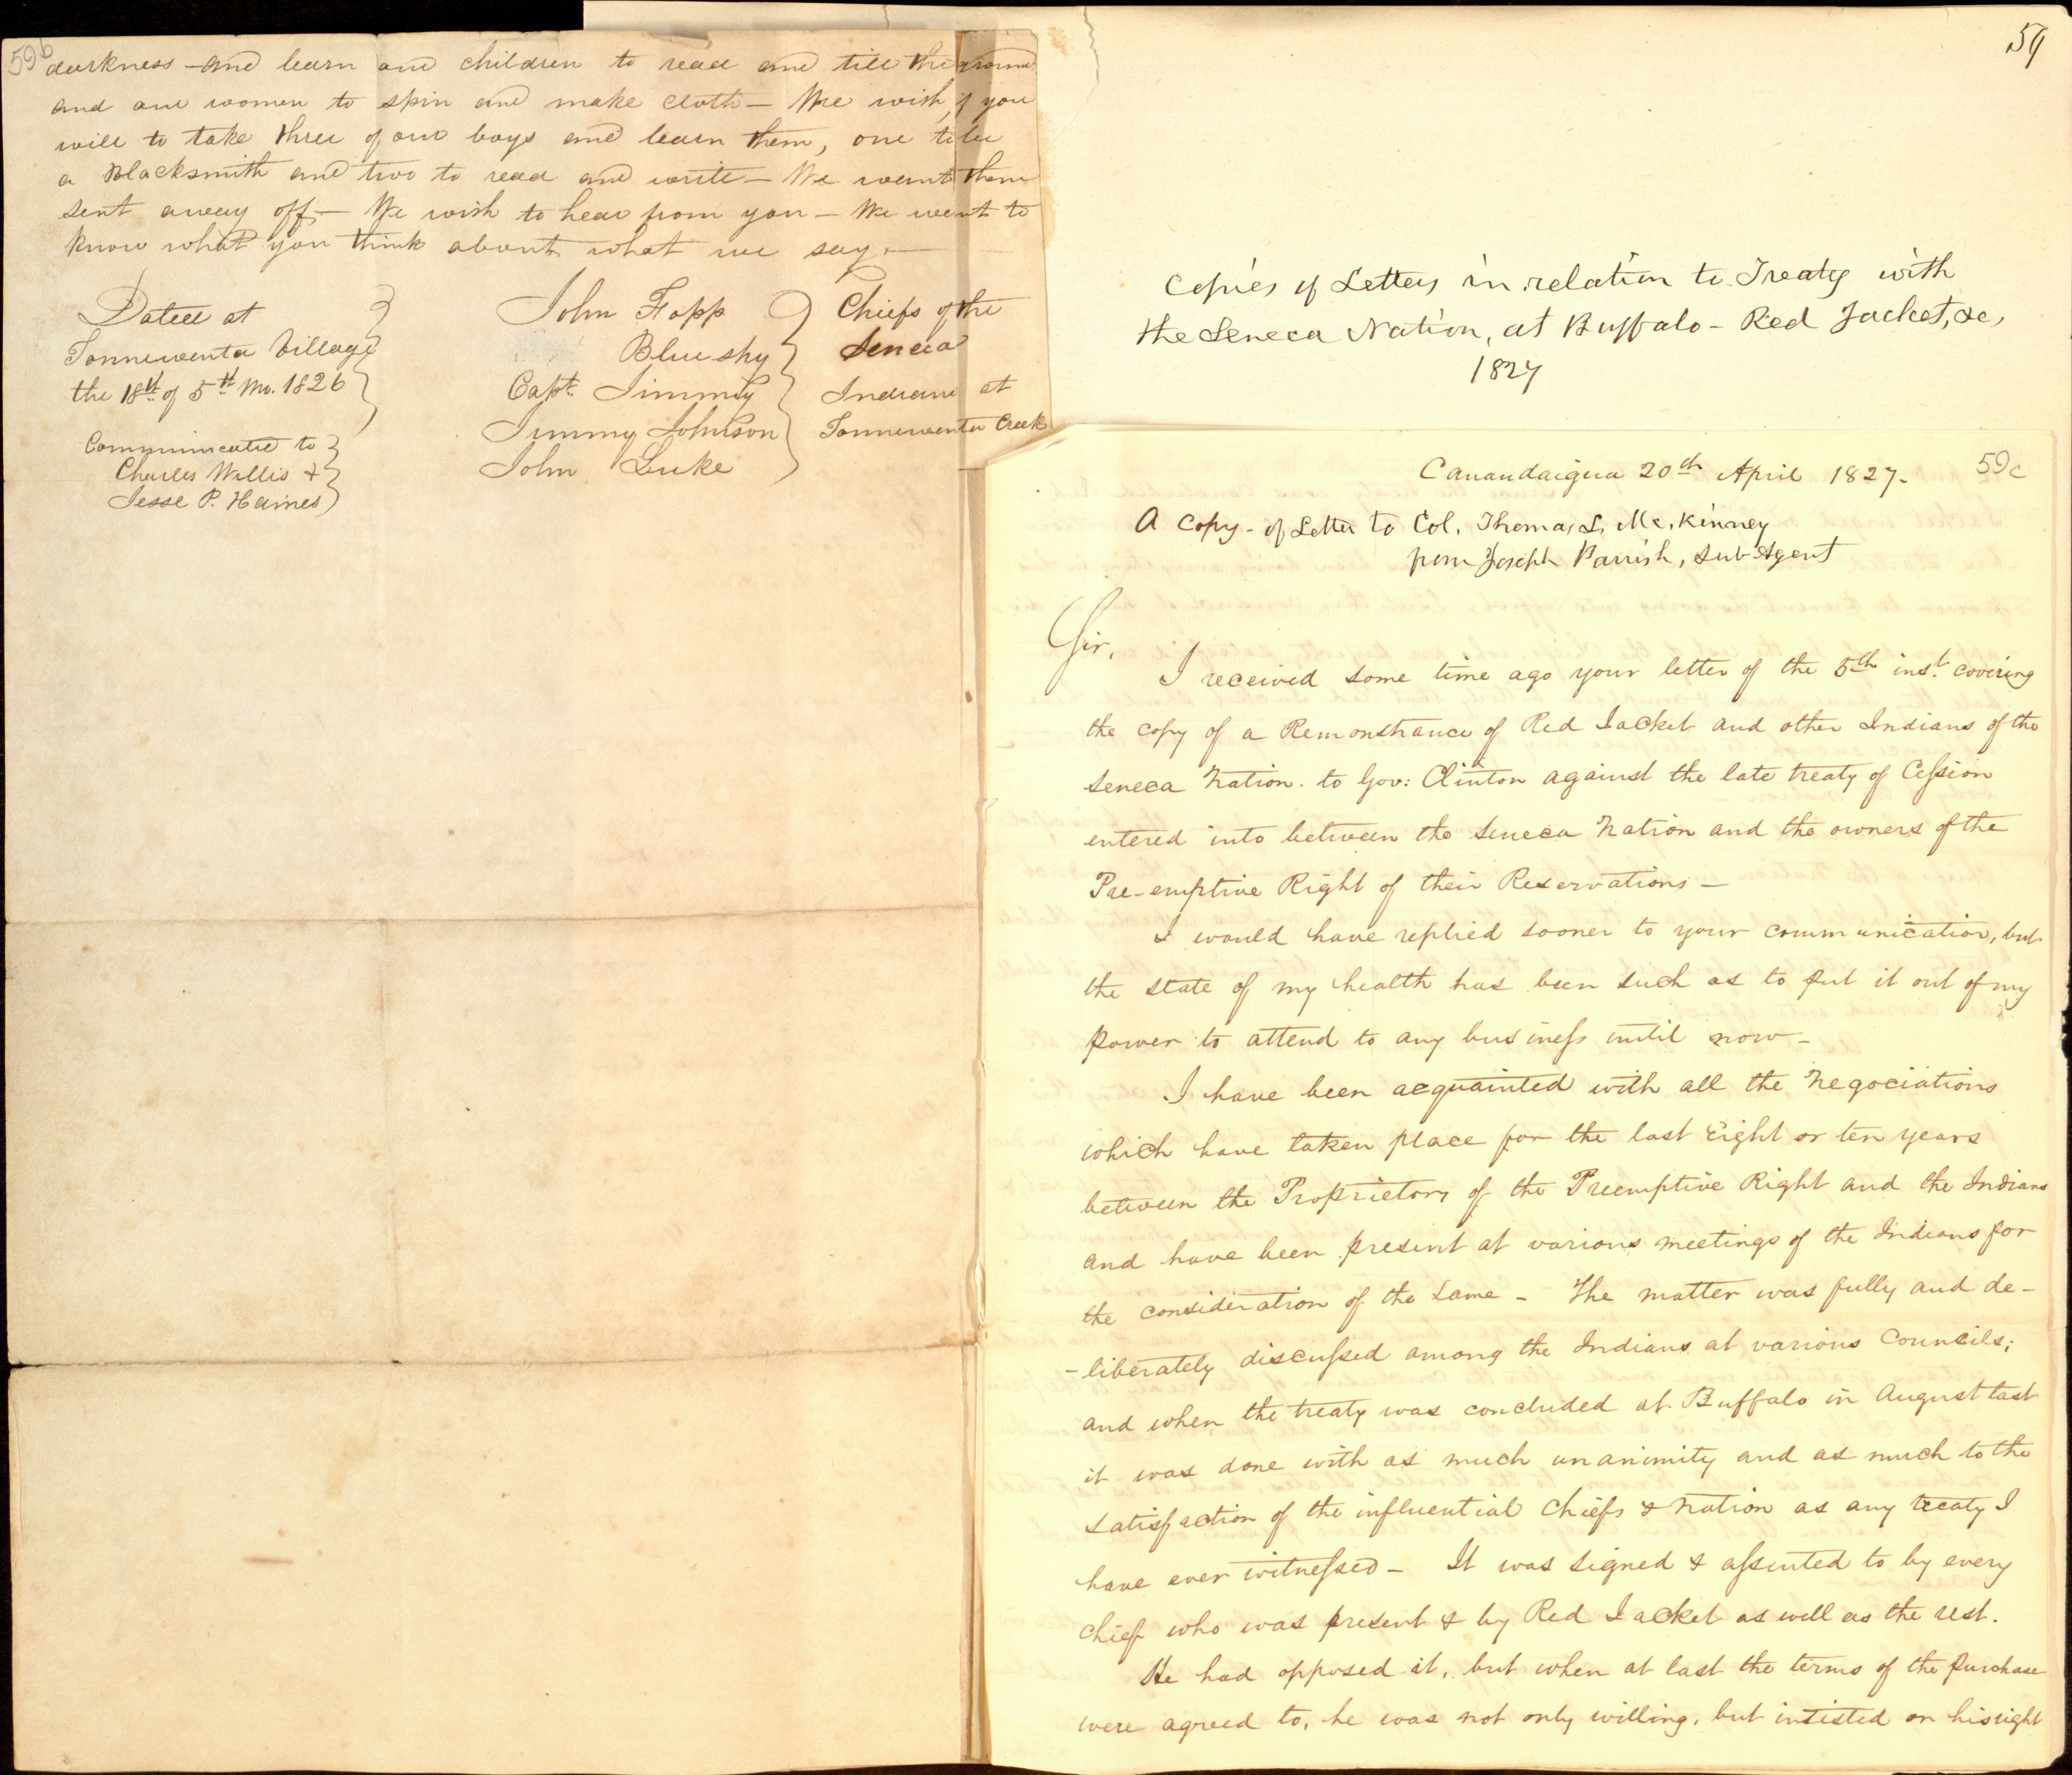 59b
darkness - and learn our children to read and till the ground
and our women to spin and make cloth - We wish, if you
will to take three of our boys and learn them, one to be
a Blacksmith and two to read and write - We want them
sent away off - We wish to hear from you - We want to
know what you think about what we say. -
Dated at
Tonnewenta Village
the 18th of 5th Mo. 1826
Communicated to
Charles Willis &
Jesse P. Haines
John Fopp
Blue sky
Capt. Jimmy
Jimmy Johnson
John Luke
Chiefs of the
Seneca
Indians at
Tonnewenta Creek
59
Copies of Letters in relation to Treaty with
the Seneca Nation, at Buffalo - Red Jacket, &c,
1827
59c
Canandaigua 20th April 1827.
A Copy - of Letter to Col. Thomas L. Mc.Kinney
from Joseph Parrish, Sub-Agent
Sir,
I received some time ago your letter of the 5th inst. covering
the copy of a Remonstrance of Red Jacket and other Indians of the
Seneca Nation. to Gov: Clinton against the late treaty of Cession
entered into between the Seneca Nation and the owners of the
Pre-emptive Right of their Reservations -
I would have replied sooner to your communication, but
the state of my health has been such as to put it out of my
power to attend to any business until now -
I have been acquainted with all the Negociations
which have taken place for the last Eight or ten years
between the Proprietors of the Preemptive Right and the Indians
and have been present at various meetings of the Indians for
the consideration of the same - The matter was fully and de-
-liberately discussed among the Indians at various Councils;
and when the treaty was concluded at Buffalo in August last
it was done with as much unanimity and as much to the
satisfaction of the influential Chiefs & Nation as any treaty I
have ever witnessed - It was signed & assented to by every
chief who was present & by Red Jacket as well as the rest.
He had opposed it, but when at last the terms of the purchase
were agreed to, he was not only willing, but insisted on his right